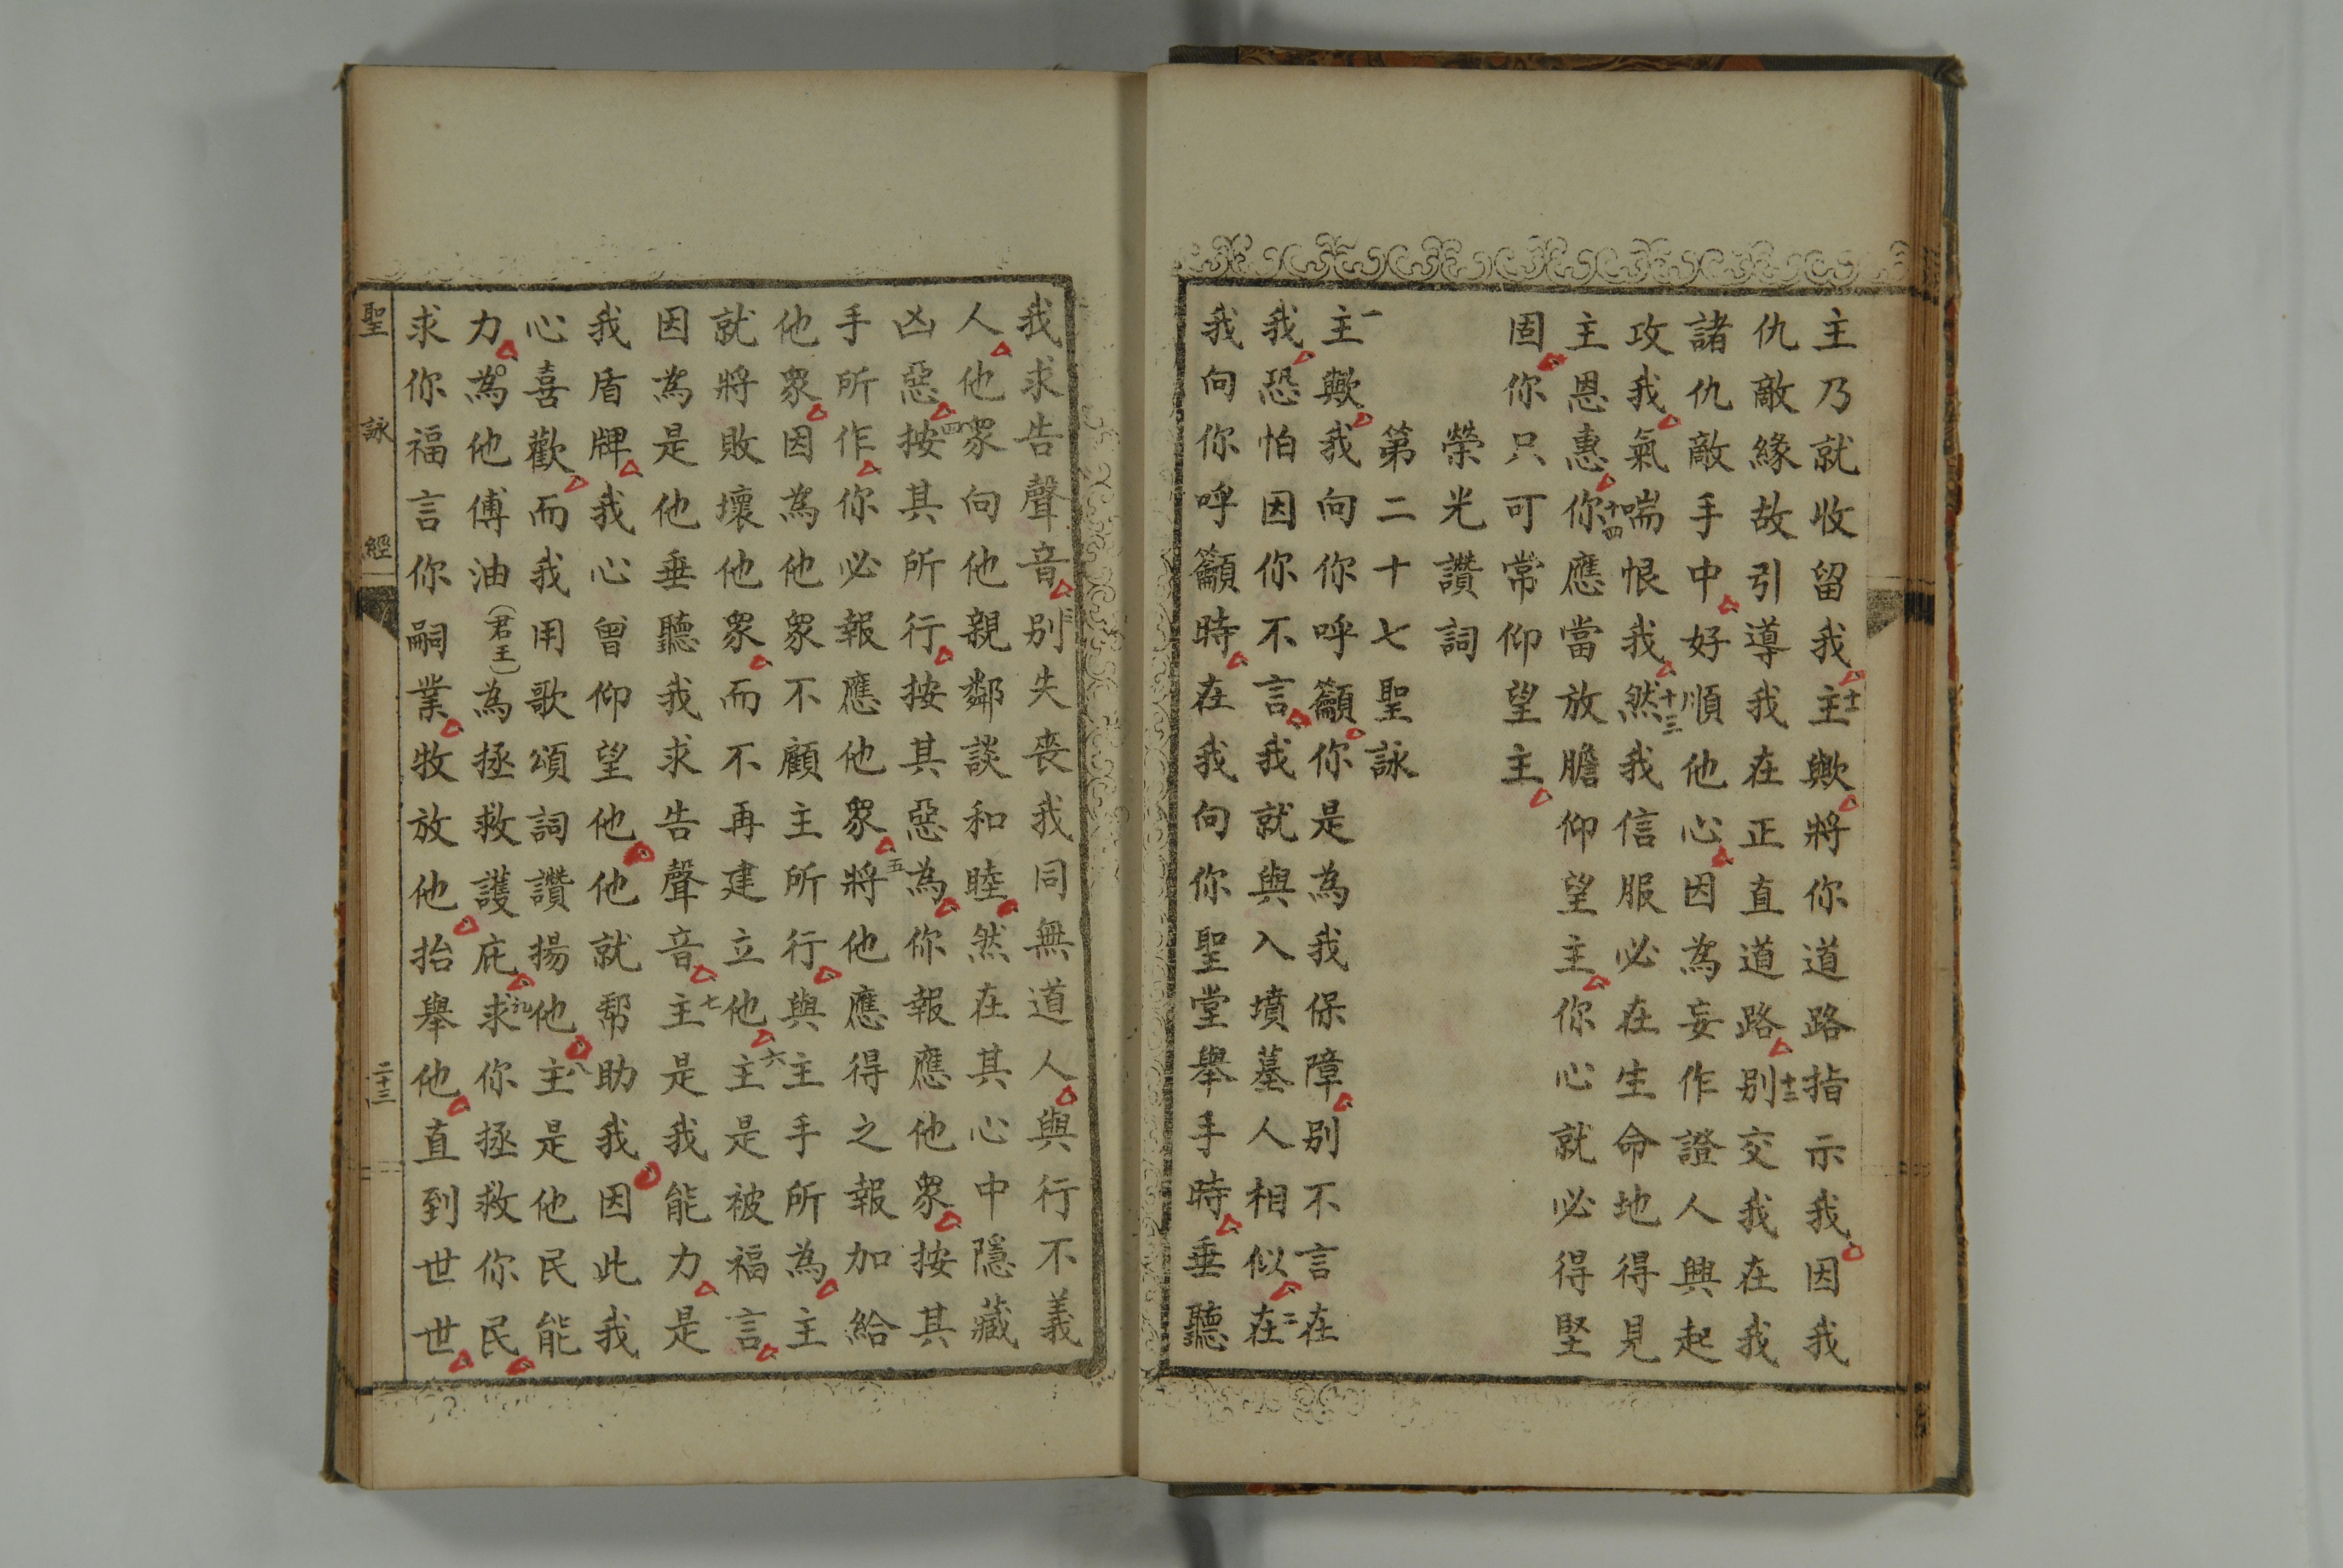 主乃就收留我主十一歟將你道路指示我因我
仇敵緣故引導我在正直道路別十二交我在我
諸仇敵手中好順他心因為妄作證人興起
攻我氣喘恨我然十三我信服必在生命地得見
主恩惠你十四應當放膽仰望主你心就必得堅
固你只可常仰望主
榮光讚詞
第二十七聖詠
一主歟我向你呼籲你是為我保障別不言在
我恐怕因你不言我就與入墳墓人相似在二
我向你呼籲時在我向你聖堂舉手時垂聽
我求告聲音別三失喪我同無道人與行不義
人他眾向他親鄰談和睦然在其心中隱藏
凶惡按四其所行按其惡為你報應他眾按其
手所作你必報應他眾將五他應得之報加給
他眾因為他眾不顧主所行與主手所為主
就將敗壞他眾而不再建立他主六是被福言
因為是他垂聽我求告聲音主七是我能力是
我盾牌我心曾仰望他他就幫助我因此我
心喜歡而我用歌頌詞讚揚他主八是他民能
力為他傅油(君王)為拯救護庇求九你拯救你民
求你福言你嗣業牧放他抬舉他直到世世
聖詠經
二十三